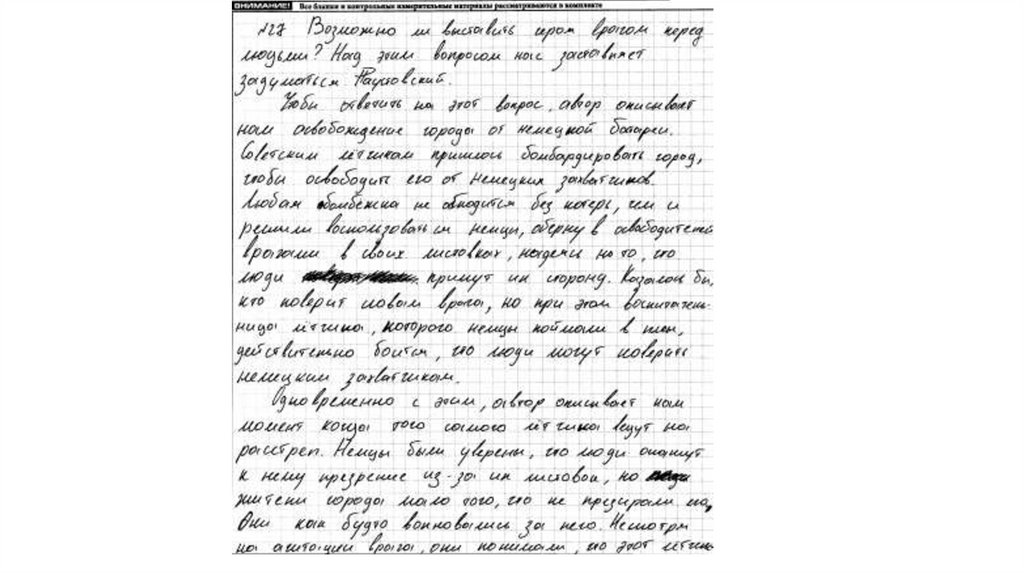 ВНИМАНИЕ! Все бланки и контрольные измерительные материалы рассматриваются в комплекте
№27 Возможно ли выставить героя врагом перед
людьми? Над этим вопросом нас заставляет
задуматься Паустовский.
Чтобы ответить на этот вопрос, автор описывает
нам освобождение города от немецкой батареи.
Советским лётчикам пришлось бомбардировать город,
чтобы освободить его от немецких захватчиков.
Любая бомбёжка не обходится без потерь, чем и
решили воспользоваться немцы, обернув освободителей
врагами в своих листовках, надеясь на то, что
люди примут их сторону. Казалось бы,
кто поверит словам врага, но при этом воспитатель-
ница лётчика, которого немцы поймали в плен,
действительно боится, что люди могут поверить
немецким захватчикам.
Одновременно с этим, автор описывает нам
момент когда того самого лётчика ведут на
расстрел. Немцы были уверены, что люди окажут
к нему презрение из-за их листовок, но
жители города мало того, что не презирали его,
Они как будто волновались за него. Несмотря
на агитации врага, они понимали, что этот лётчик